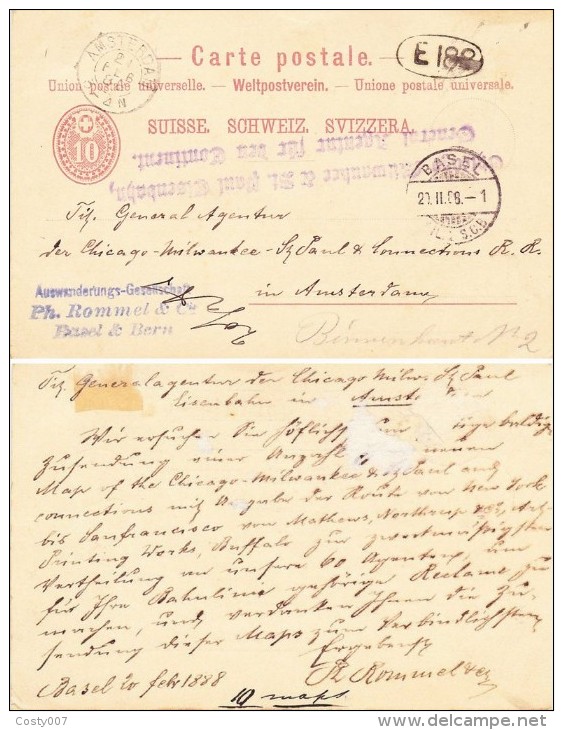 AMSTERDAM
Carte postale.
E 188
Union postale universelle. — Weltpostverein. — Unione postale universale.
10
SUISSE. SCHWEIZ. SVIZZERA.
General Agentur für den Continent.
Milwaukee & St. Paul Eisenbahn,
BASEL
20.II.88.-1
S.C.B.
Tit. General Agentur
der Chicago-Milwaukee-St Paul & Connections R. R.
in Amsterdam,
Auswanderungs-Gesellschaft
Ph. Rommel & Cie
Basel & Bern
Binnenkant No 2
Tit. Generalagentur der Chicago Milw. St Paul
Eisenbahn in Amst
Wir ersuchen Sie höflichst um baldige
Zusendung einer Anzahl neuen
Map of the Chicago-Milwaukee & St Paul and
connections mit Angabe der Route von New York
bis Sanfrancisco von Mathews, Northrup & Co, Art-
Printing Works, Buffalo zur zweckmässigsten
Vertheilung an unsere 60 Agenten, um
für Ihre Bahnlinie gehörige Reclame zu
machen, und verdanken Ihnen die Zu-
sendung dieser Maps zum Verbindlichsten
Ergebenst
Ph. Rommel & Cie
Basel 20 febr 1888
10 maps
Costy007
delcampe.net